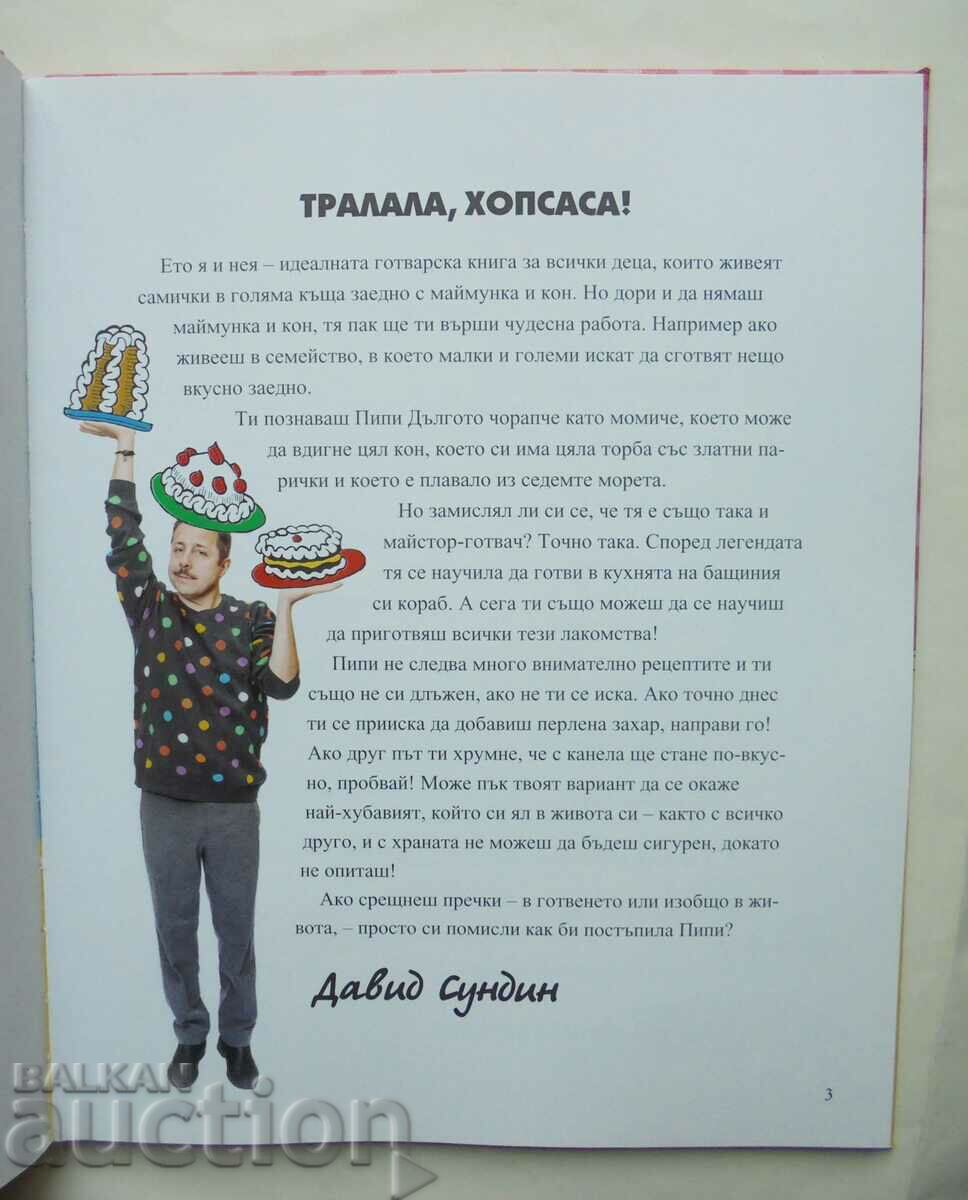 ТРАЛАЛА, ХОПСАСА!
Ето я и нея – идеалната готварска книга за всички деца, които живеят
самички в голяма къща заедно с маймунка и кон. Но дори и да нямаш
маймунка и кон, тя пак ще ти върши чудесна работа. Например ако
живееш в семейство, в което малки и големи искат да сготвят нещо
вкусно заедно.
Ти познаваш Пипи Дългото чорапче като момиче, което може
да вдигне цял кон, което си има цяла торба със златни па-
рички и което е плавало из седемте морета.
Но замислял ли си се, че тя е също така и
майстор-готвач? Точно така. Според легендата
тя се научила да готви в кухнята на бащиния
си кораб. А сега ти също можеш да се научиш
да приготвяш всички тези лакомства!
Пипи не следва много внимателно рецептите и ти
също не си длъжен, ако не ти се иска. Ако точно днес
ти се прииска да добавиш перлена захар, направи го!
Ако друг път ти хрумне, че с канела ще стане по-вкус-
но, пробвай! Може пък твоят вариант да се окаже
най-хубавият, който си ял в живота си – както с всичко
друго, и с храната не можеш да бъдеш сигурен, докато
не опиташ!
Ако срещнеш пречки – в готвенето или изобщо в жи-
вота, – просто си помисли как би постъпила Пипи?
Давид Сундин
3
BALKAN
auction